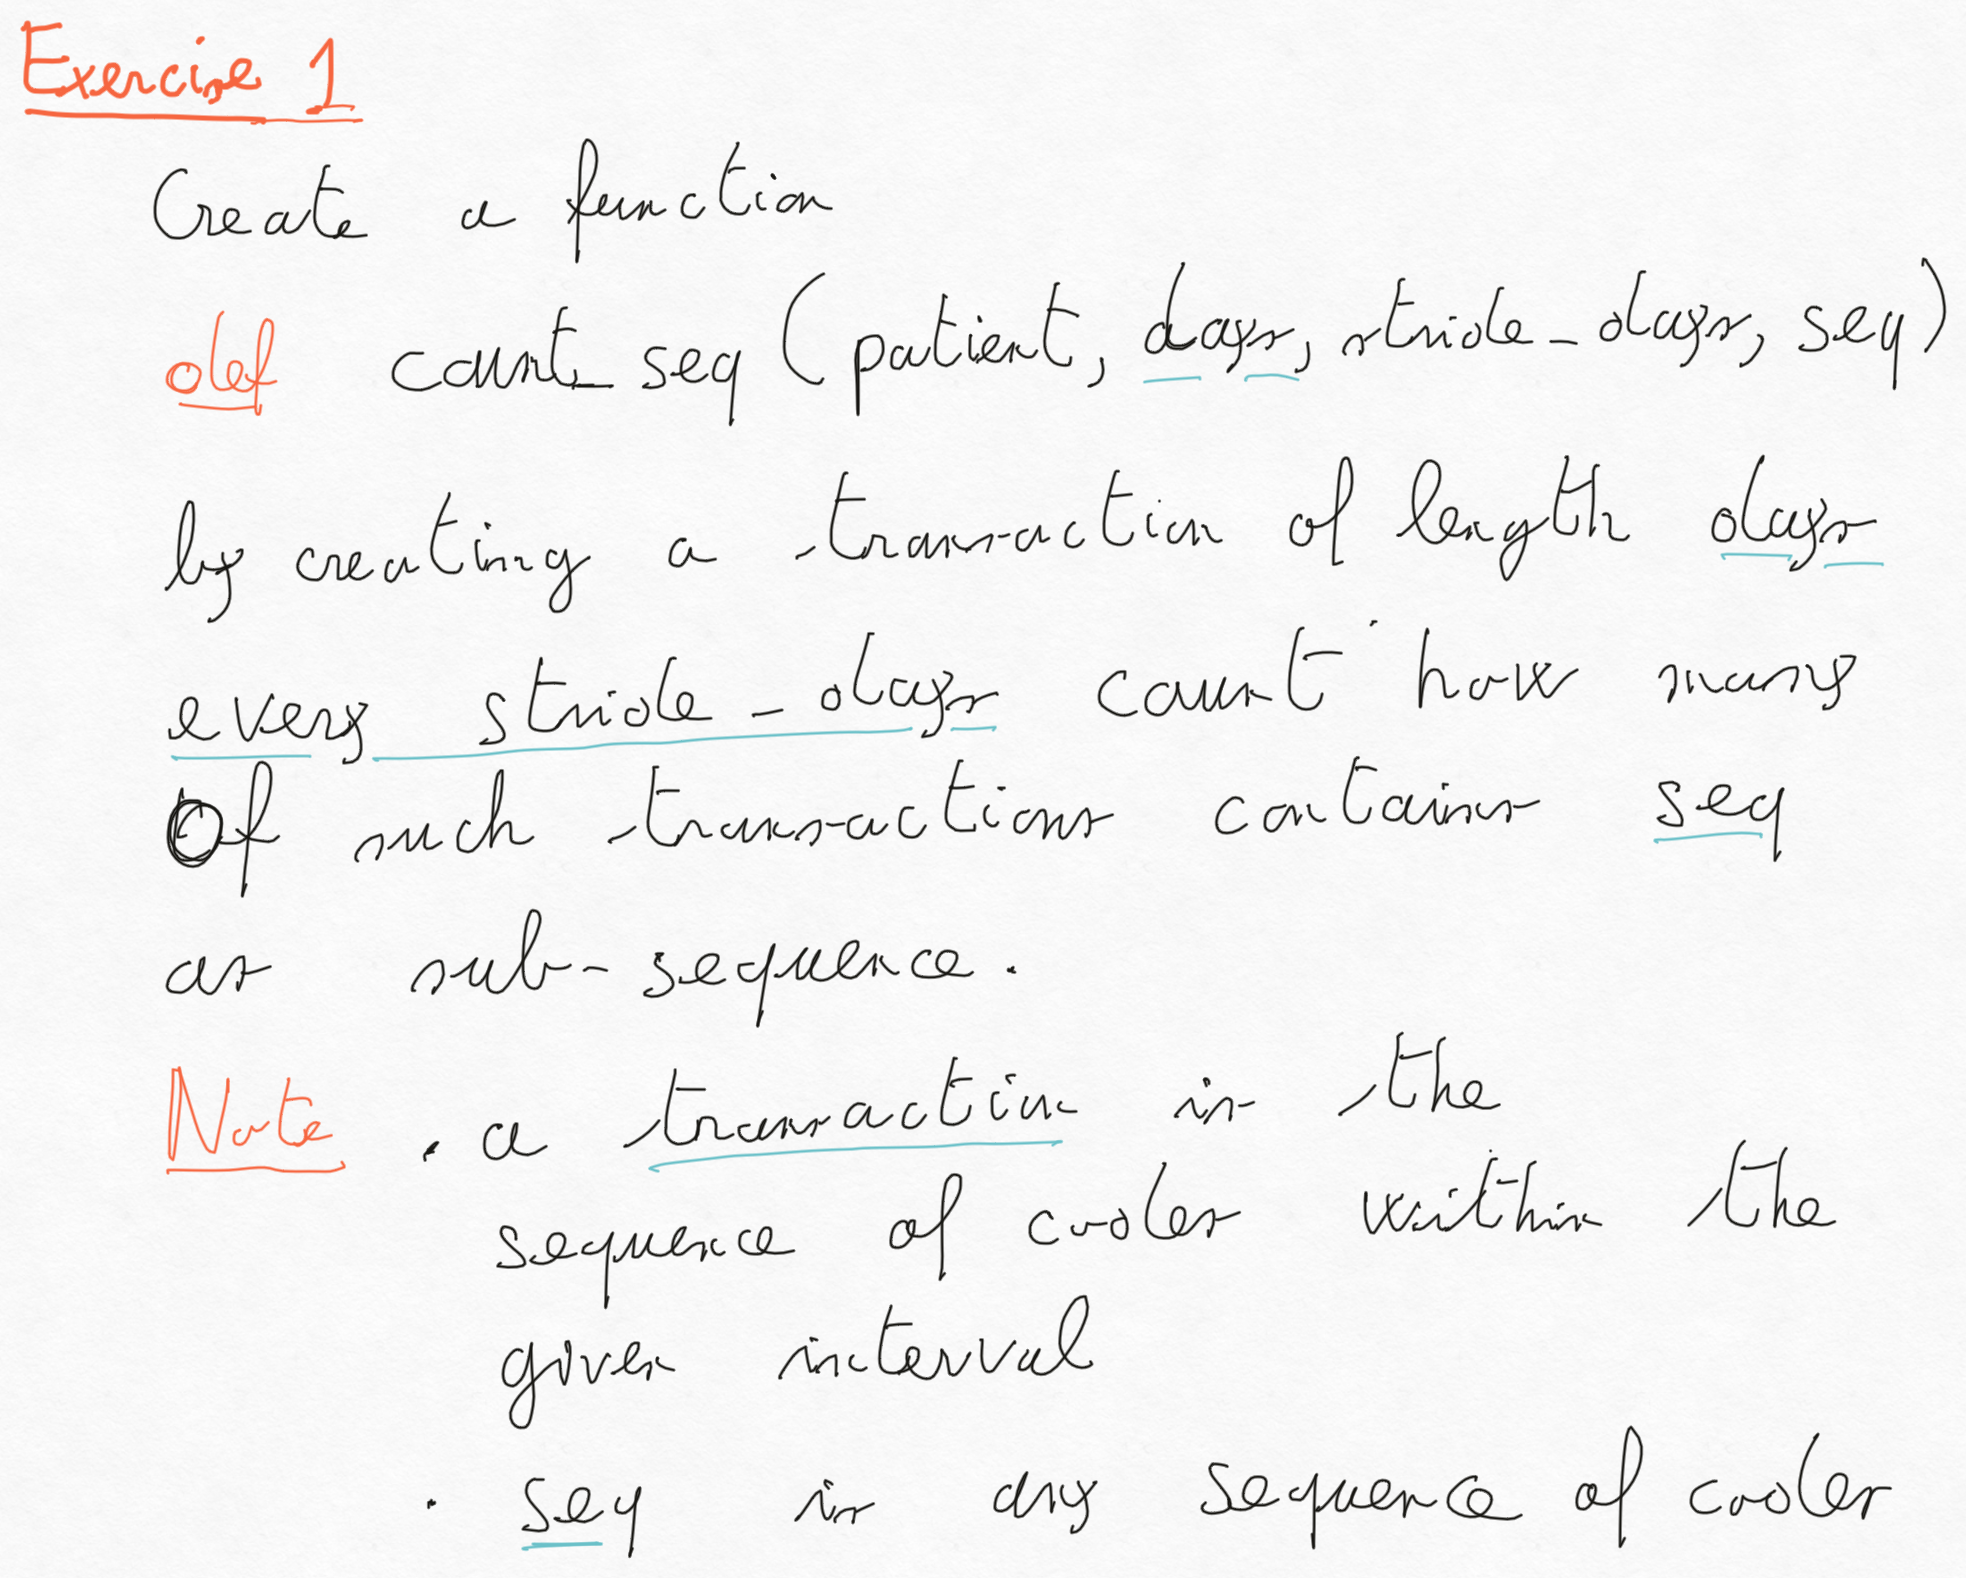 Exercise 1
Create a function
def count_seq (patient, days, stride_days, seq)
by creating a transaction of length days
every stride_days count how many
Of such transactions contains seq
as sub-sequence.
Note . a transaction is the
sequence of codes within the
given interval
. seq is any sequence of codes